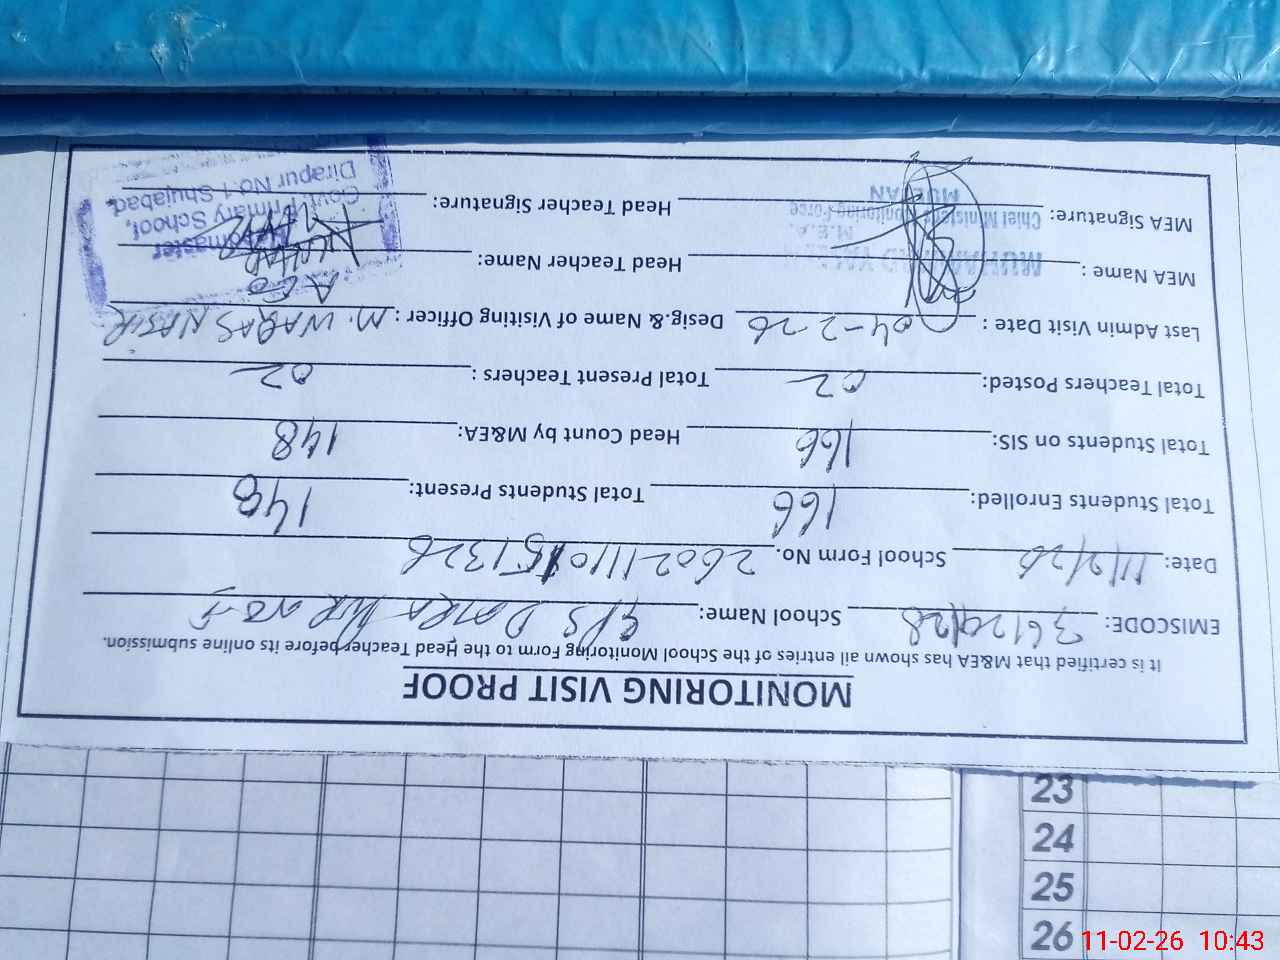 MONITORING VISIT PROOF
It is certified that M&EA has shown all entries of the School Monitoring Form to the Head Teacher before its online submission.
EMISCODE: School Name: GPS
Date: 11/2/26 School Form No. 
Total Students Enrolled: 166 Total Students Present: 148
Total Students on SIS: 166 Head Count by M&EA: 148
Total Teachers Posted: 02 Total Present Teachers : 02
Last Admin Visit Date : 04-2-26 Desig.& Name of Visiting Officer : M. WAQAS NASIR
AEO
MEA Name : Head Teacher Name:
MEA Signature: Head Teacher Signature:
M.E.A.
Chief Minister's Monitoring Force
MULTAN
Headmaster
Govt. Primary School,
Dirapur No.1 Shujabad.
23
24
25
26
11-02-26 10:43